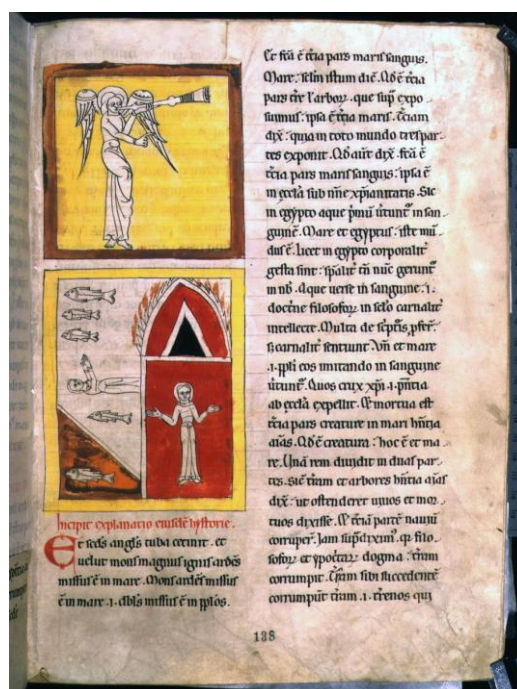 Incipit explanatio eiusdē hystorie.
Et scd̄s angl̄s tuba cecinit. et
uelut mons magnus ignis ardēs
missus ē in mare. Mons ardēs missus
ē in mare .i. diabl̄s missus ē in pplōs.
Et fcā ē tcia pars maris sanguis.
Mare: sclm̄ istum dic̄. Qd̄ ē tcia
pars tr̄e & arborꝝ. que sup̄ expo
suimus: ipsa ē tcia maris. Terciam
dix̄: quia in toto mundo tres par
tes exponit. Qd̄ aūt dix̄. fcā ē
tcia pars maris sanguis: ipsa ē
in eccl̄a sub nn̄e xp̄ianitatis. Sic
in egypto aque p̄mū uertunt̄ in san
guinē. Mare et egyptus: iste mū
dus ē. Licet in egypto corporalit̄
gesta sint: sp̄alit̄ tn̄ nūc gerunt̄
in nb̄. Aque uerse in sanguine: .i.
doctrine filosoforꝝ in sclo carnalit̄
intellecte. Multa de scripturis
carnalit̄ sentiunt. Vn̄ et mare
.i. ppl̄i eos imitando in sanguine
uertunt̄. Quos crux xp̄i .i. pn̄itia
ab eccl̄a expellit. Et mortua est
tcia pars creature in mari hn̄tia
aīas. Qd̄ ē creatura: hoc ē et ma
re. Unā rem diuidit in duas par
tes. sic̄ terram et arbores hn̄tia aīas
dix̄: ut ostenderet uiuos et mor
tuos dixisse. Et tciā partē nauiū
corruper̄. Jam sup̄ diximꝰ. qꝫ filo
soforꝝ et ypocritarꝝ dogma: terram
corrumpit. Etiam sibi succedentē
corrumpūt terram .i. terrenos qui
138